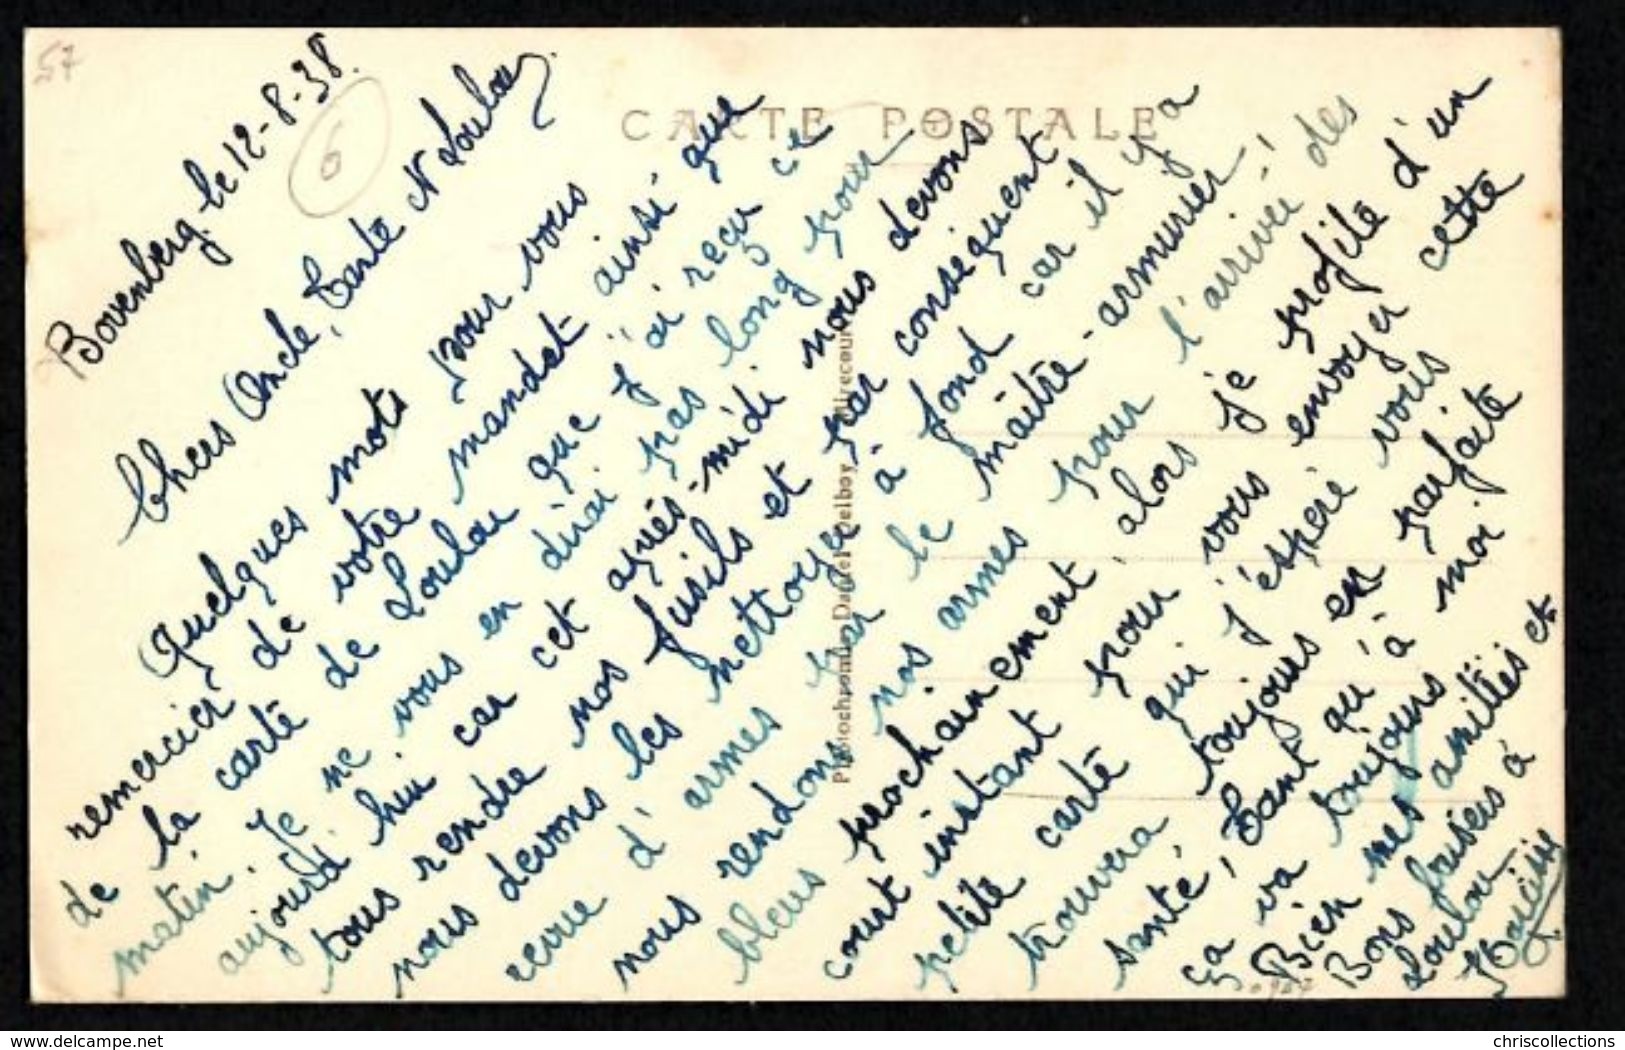 57
Bovenberg, le 12-8-38.
6
CARTE POSTALE
Chers Oncle, Tante N Loulou,
Quelques mots pour vous
remercier de votre mandat ainsi que
de la carte de Loulou que j'ai reçu ce
matin. Je ne vous en dirai pas long pour
aujourd'hui car cet après-midi nous devons
tous rendre nos fusils et par conséquent
nous devons les nettoyer à fond car il y a
revue d'armes par le maître-armurier;
nous rendons nos armes pour l'arrivée des
bleus prochainement, alors je profite d'un
court instant pour vous envoyer cette
petite carte qui j'espère vous
trouvera toujours en parfaite
santé, tant qu'à moi
ça va toujours...
Bien mes amitiés et
Bons baisers à
Loulou
delcampe.net
chriscollections